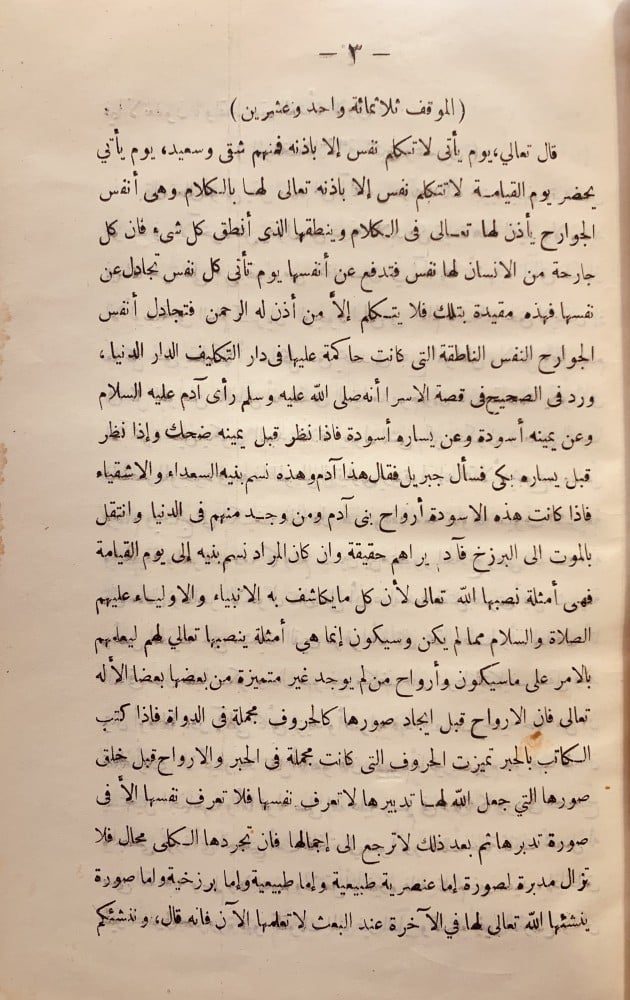 — ٣ —
( الموقف ثلاثمائة واحد وعشرين )
قال تعالي، يوم يأتى لا تكلم نفس إلا باذنه فمنهم شقى وسعيد، يوم يأتي
يحضر يوم القيامة لا تتكلم نفس إلا باذنه تعالى لها بالكلام وهى أنفس
الجوارح يأذن لها تعالى فى الكلام وينطقها الذى أنطق كل شىء فان كل
جارحة من الانسان لها نفس فتدفع عن أنفسها يوم تأتى كل نفس تجادل عن
نفسها فهذه مقيدة بتلك فلا يتكلم إلاّ من أذن له الرحمن فتجادل أنفس
الجوارح النفس الناطقة التى كانت حاكمة عليها فى دار التكليف الدار الدنيا ،
ورد فى الصحيح فى قصة الاسرا أنه صلى الله عليه وسلم رأى آدم عليه السلام
وعن يمينه أسودة وعن يساره أسودة فاذا نظر قبل يمينه ضحك وإذا نظر
قبل يساره بكى فسأل جبريل فقال هذا آدم وهذه نسم بنيه السعداء والاشقياء
فاذا كانت هذه الاسودة أرواح بنى آدم ومن وجد منهم فى الدنيا وانتقل
بالموت الى البرزخ فآد يراهم حقيقة وان كان المراد نسم بنيه إلى يوم القيامة
فهى أمثلة نصبها الله تعالى لأن كل ما يكاشف به الانبياء والاولياء عليهم
الصلاة والسلام مما لم يكن وسيكون إنما هي أمثلة ينصبها تعالي لهم ليعلمهم
بالامر على ماسيكون وأرواح من لم يوجد غير متميزة من بعضها بعضا الأ له
تعالى فان الارواح قبل ايجاد صورها كالحروف مجملة فى الدواة فاذا كتب
الكاتب بالحبر تميزت الحروف التى كانت مجملة فى الحبر والارواح قبل خلق
صورها التي جعل الله لها تدبيرها لا تعرف نفسها فلا تعرف نفسها الأ فى
صورة تدبرها ثم بعد ذلك لا ترجع الى إجمالها فان تجردها الكلى محال فلا
تزال مدبرة لصورة إما عنصرية طبيعية وإما طبيعية وإما برزخية واما صورة
ينشئها الله تعالى لها في الآخرة عند البعث لا تعلمها الآن فانه قال، وننشئكم